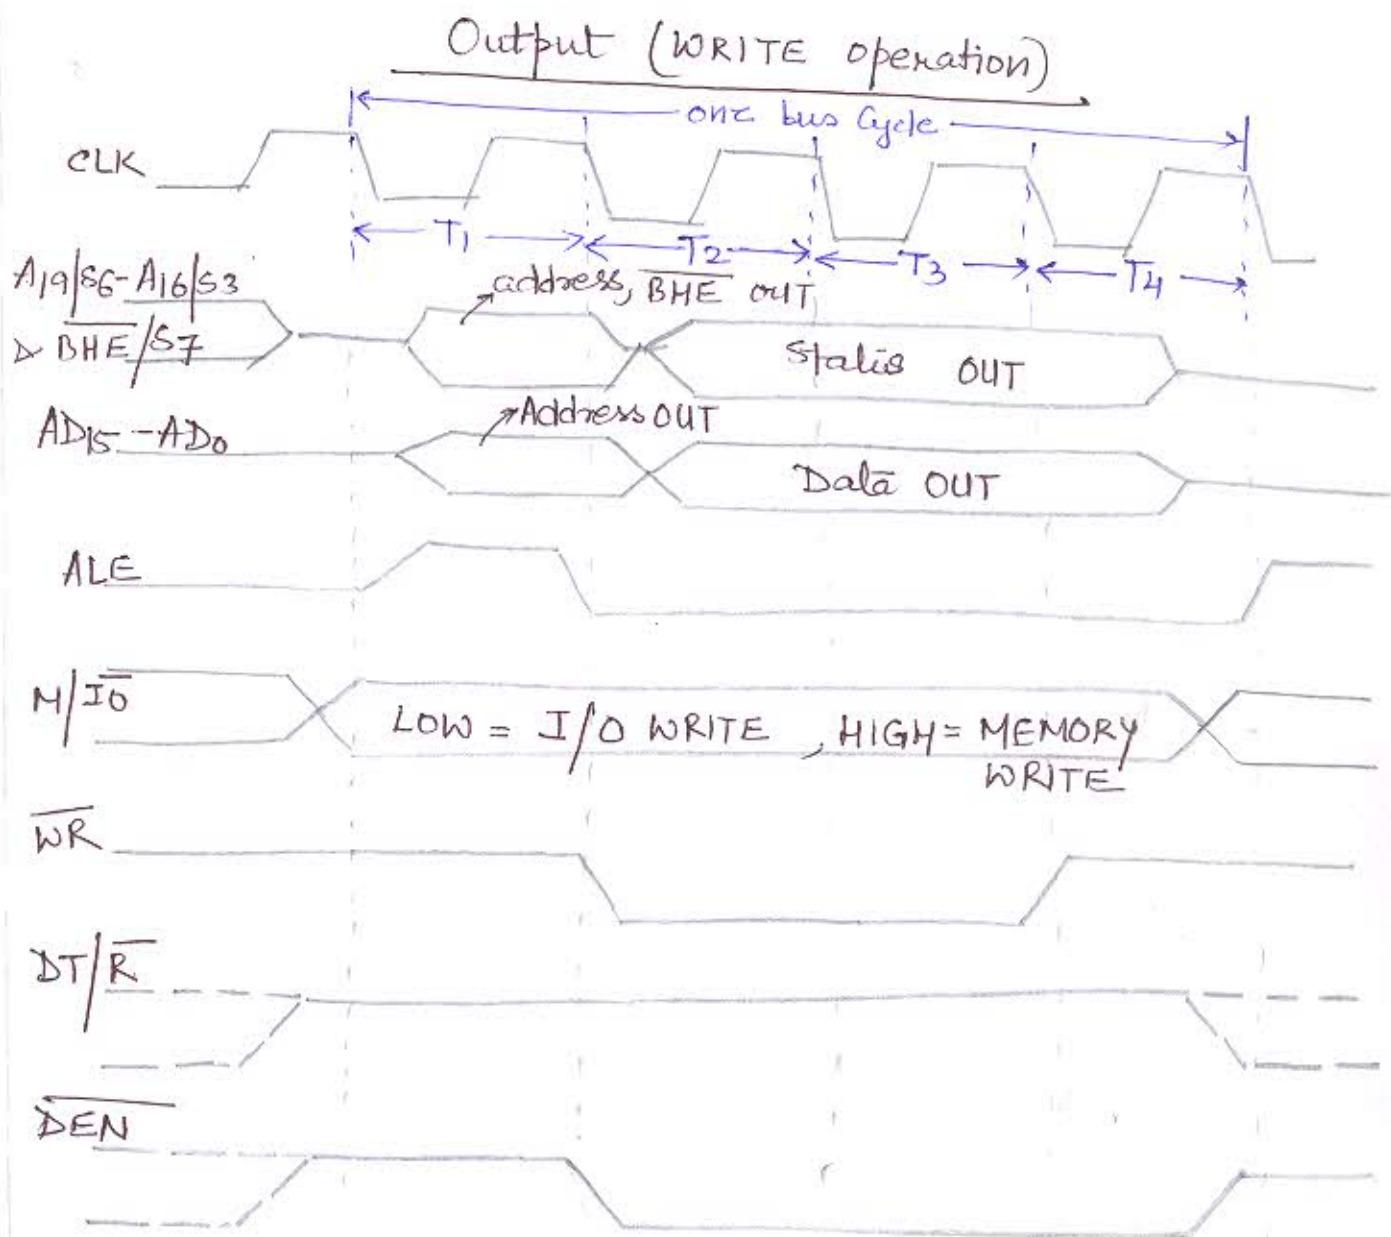 Output (WRITE operation)
one bus Cycle
CLK
T1 T2 T3 T4
A19/S6-A16/S3
address, B̅H̅E̅ OUT
& B̅H̅E̅/S7
Status OUT
AD15-AD0
Address OUT
Data OUT
ALE
M/I̅O̅
LOW = I/O WRITE, HIGH = MEMORY
WRITE
W̅R̅
DT/R̅
D̅E̅N̅